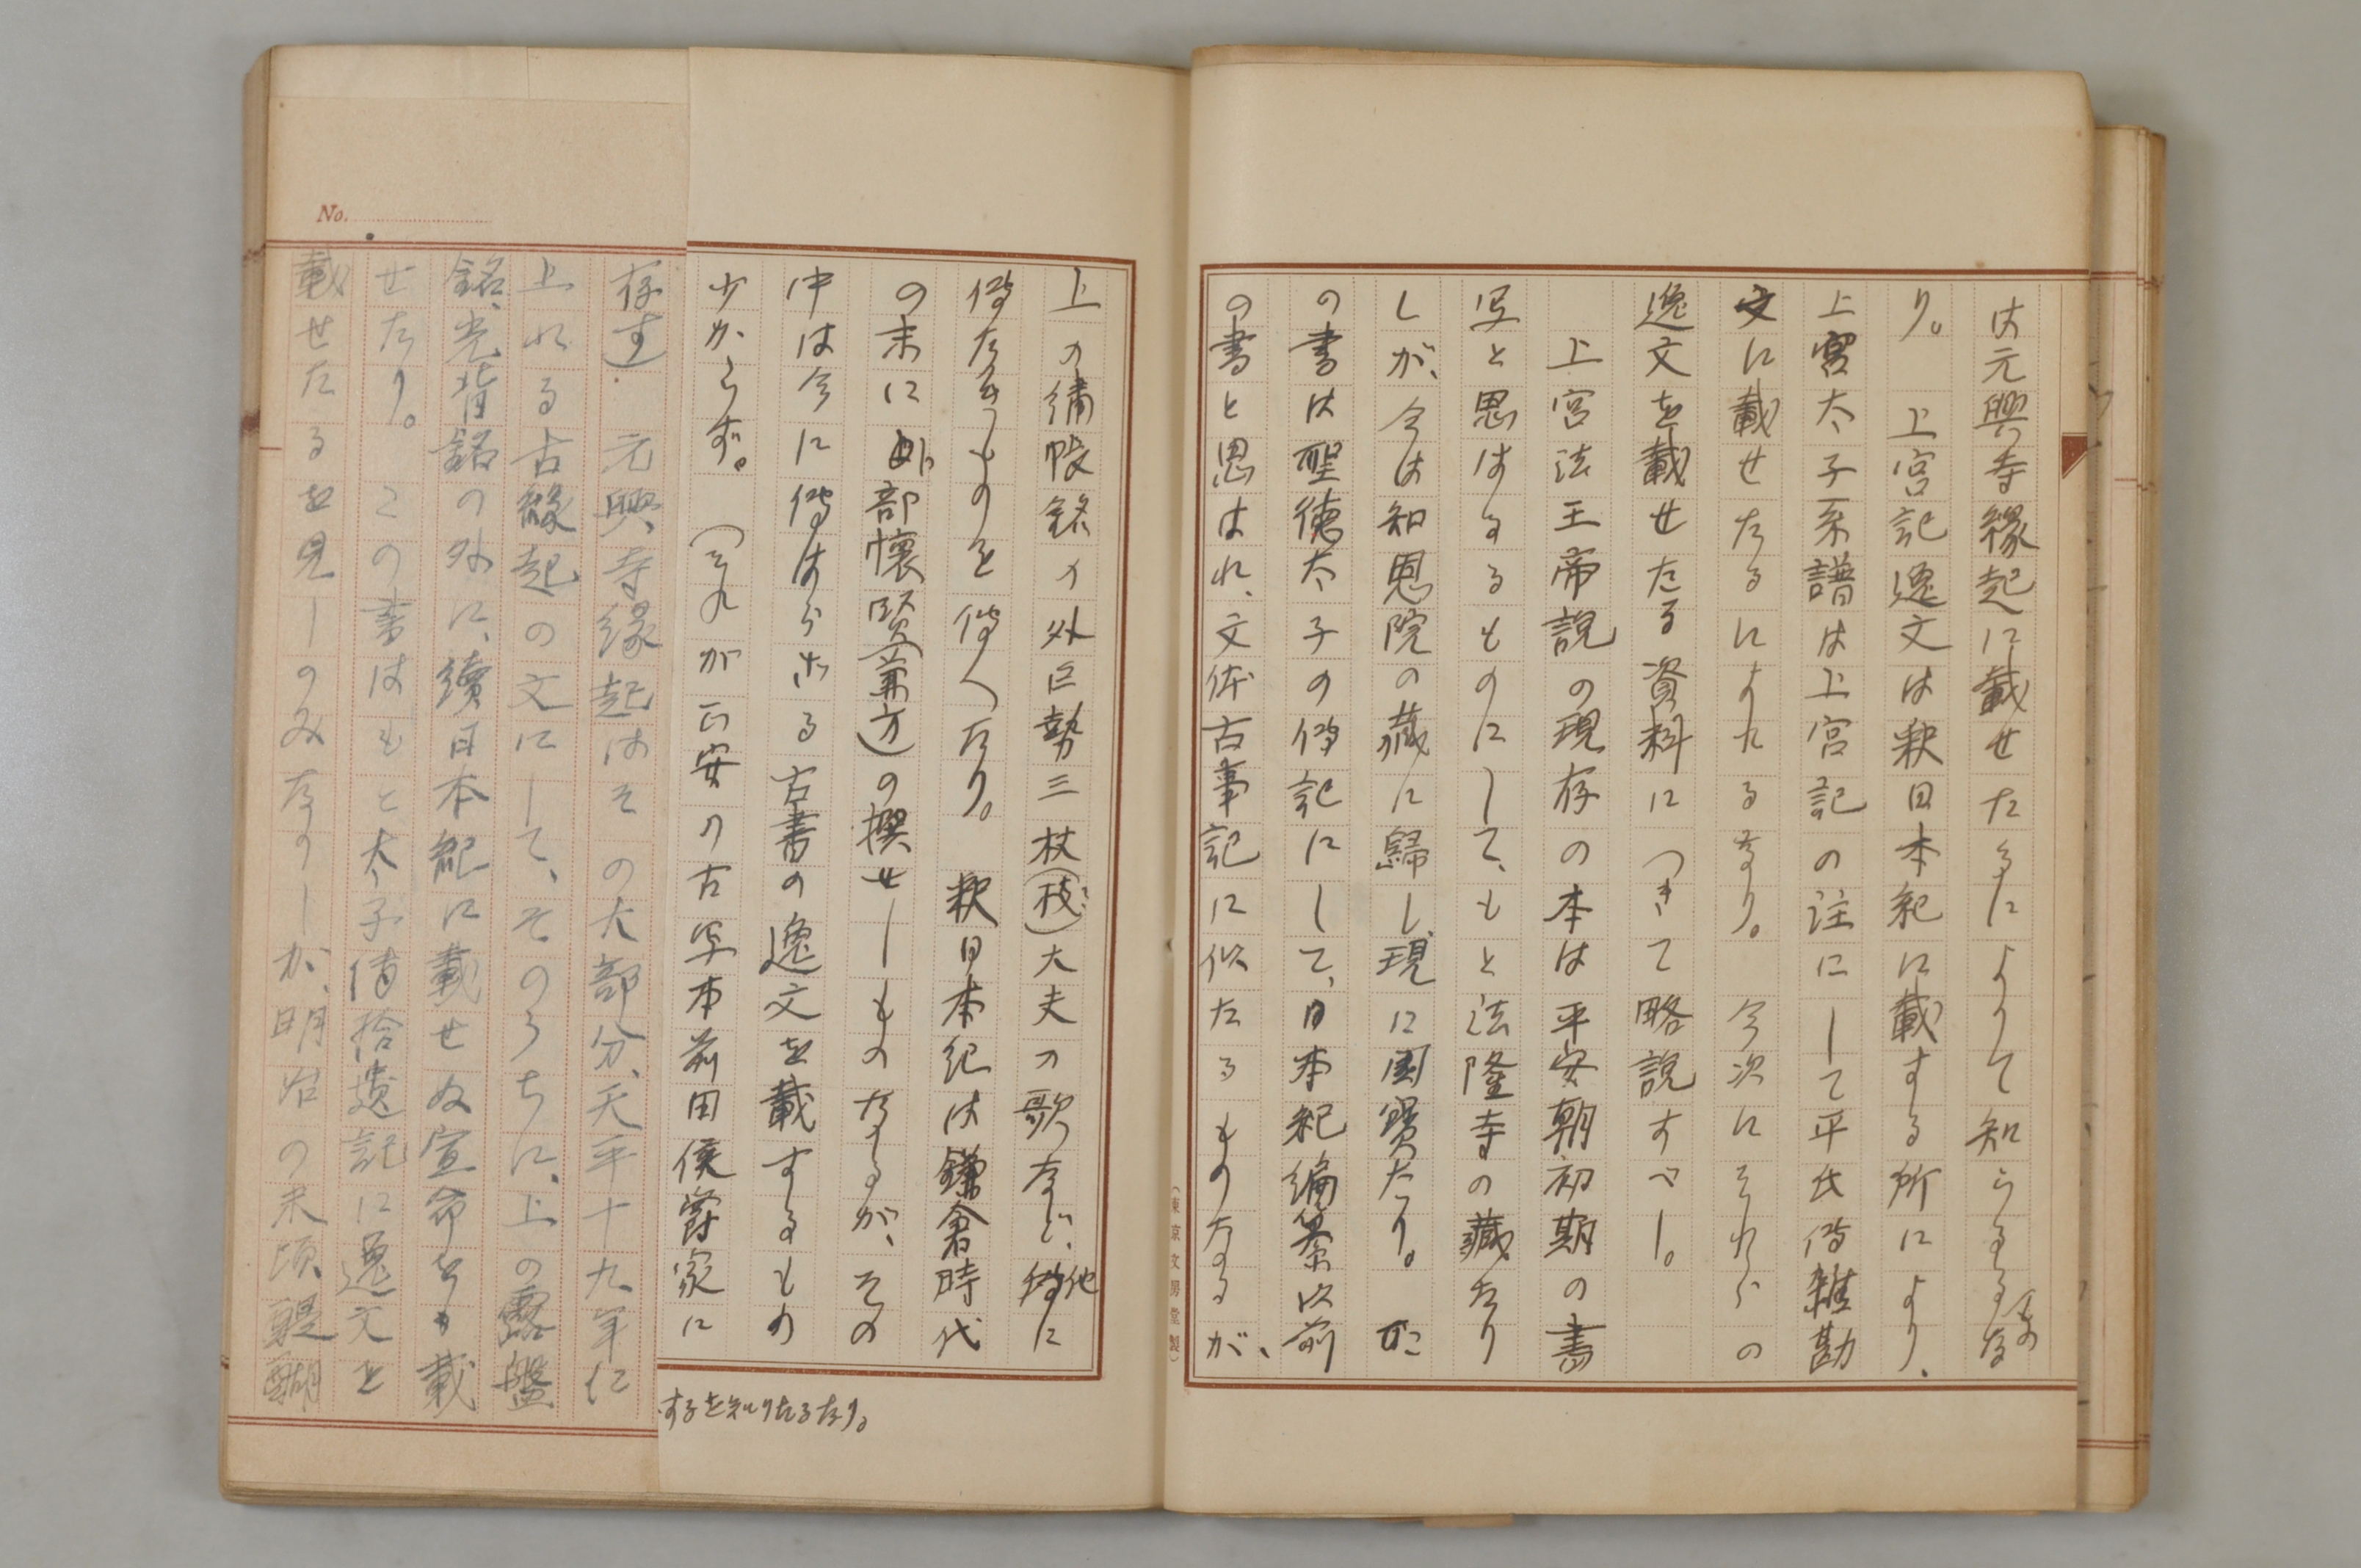 は元興寺緣起に載せたるによりて知らるるものな
り。　上宮記逸文は釈日本紀に載する所により、
上宮太子系譜は上宮記の注にして平氏傳雜勘
文に載せたるによれるなり。　今次にそれらの
逸文を載せたる資料につきて略説すべし。
上宮法王帝説の現存の本は平安朝初期の書
写と思はるるものにして、もと法隆寺の藏なり
しが、今は知恩院の藏に歸し、現に国寶たり。　こ
の書は聖徳太子の傳記にして、日本紀編纂以前
の書と思はれ、文体古事記に似たるものなるが、
（東京文房堂製）
上の繡帳銘の外巨勢三杖（枝）大夫の歌など、他に
傳なきものを傳へたり。　釈日本紀は鎌倉時代
の末に卜部懐賢（兼方）の撰せしものなるが、その
中は今に傳はらざる古書の逸文を載するもの
少からず。　（それが正安の古写本前田侯爵家に
するを知りたるなり。
No.
存す）　元興寺緣起はその大部分、天平十九年に
上れる古緣起の文にして、そのうちに、上の露盤
銘、光背銘の外に、續日本紀に載せぬ宣命をも載
せたり。　この書はもと太子傳拾遺記に逸文を
載せたるを見しのみなりしが、明治の末頃醍醐